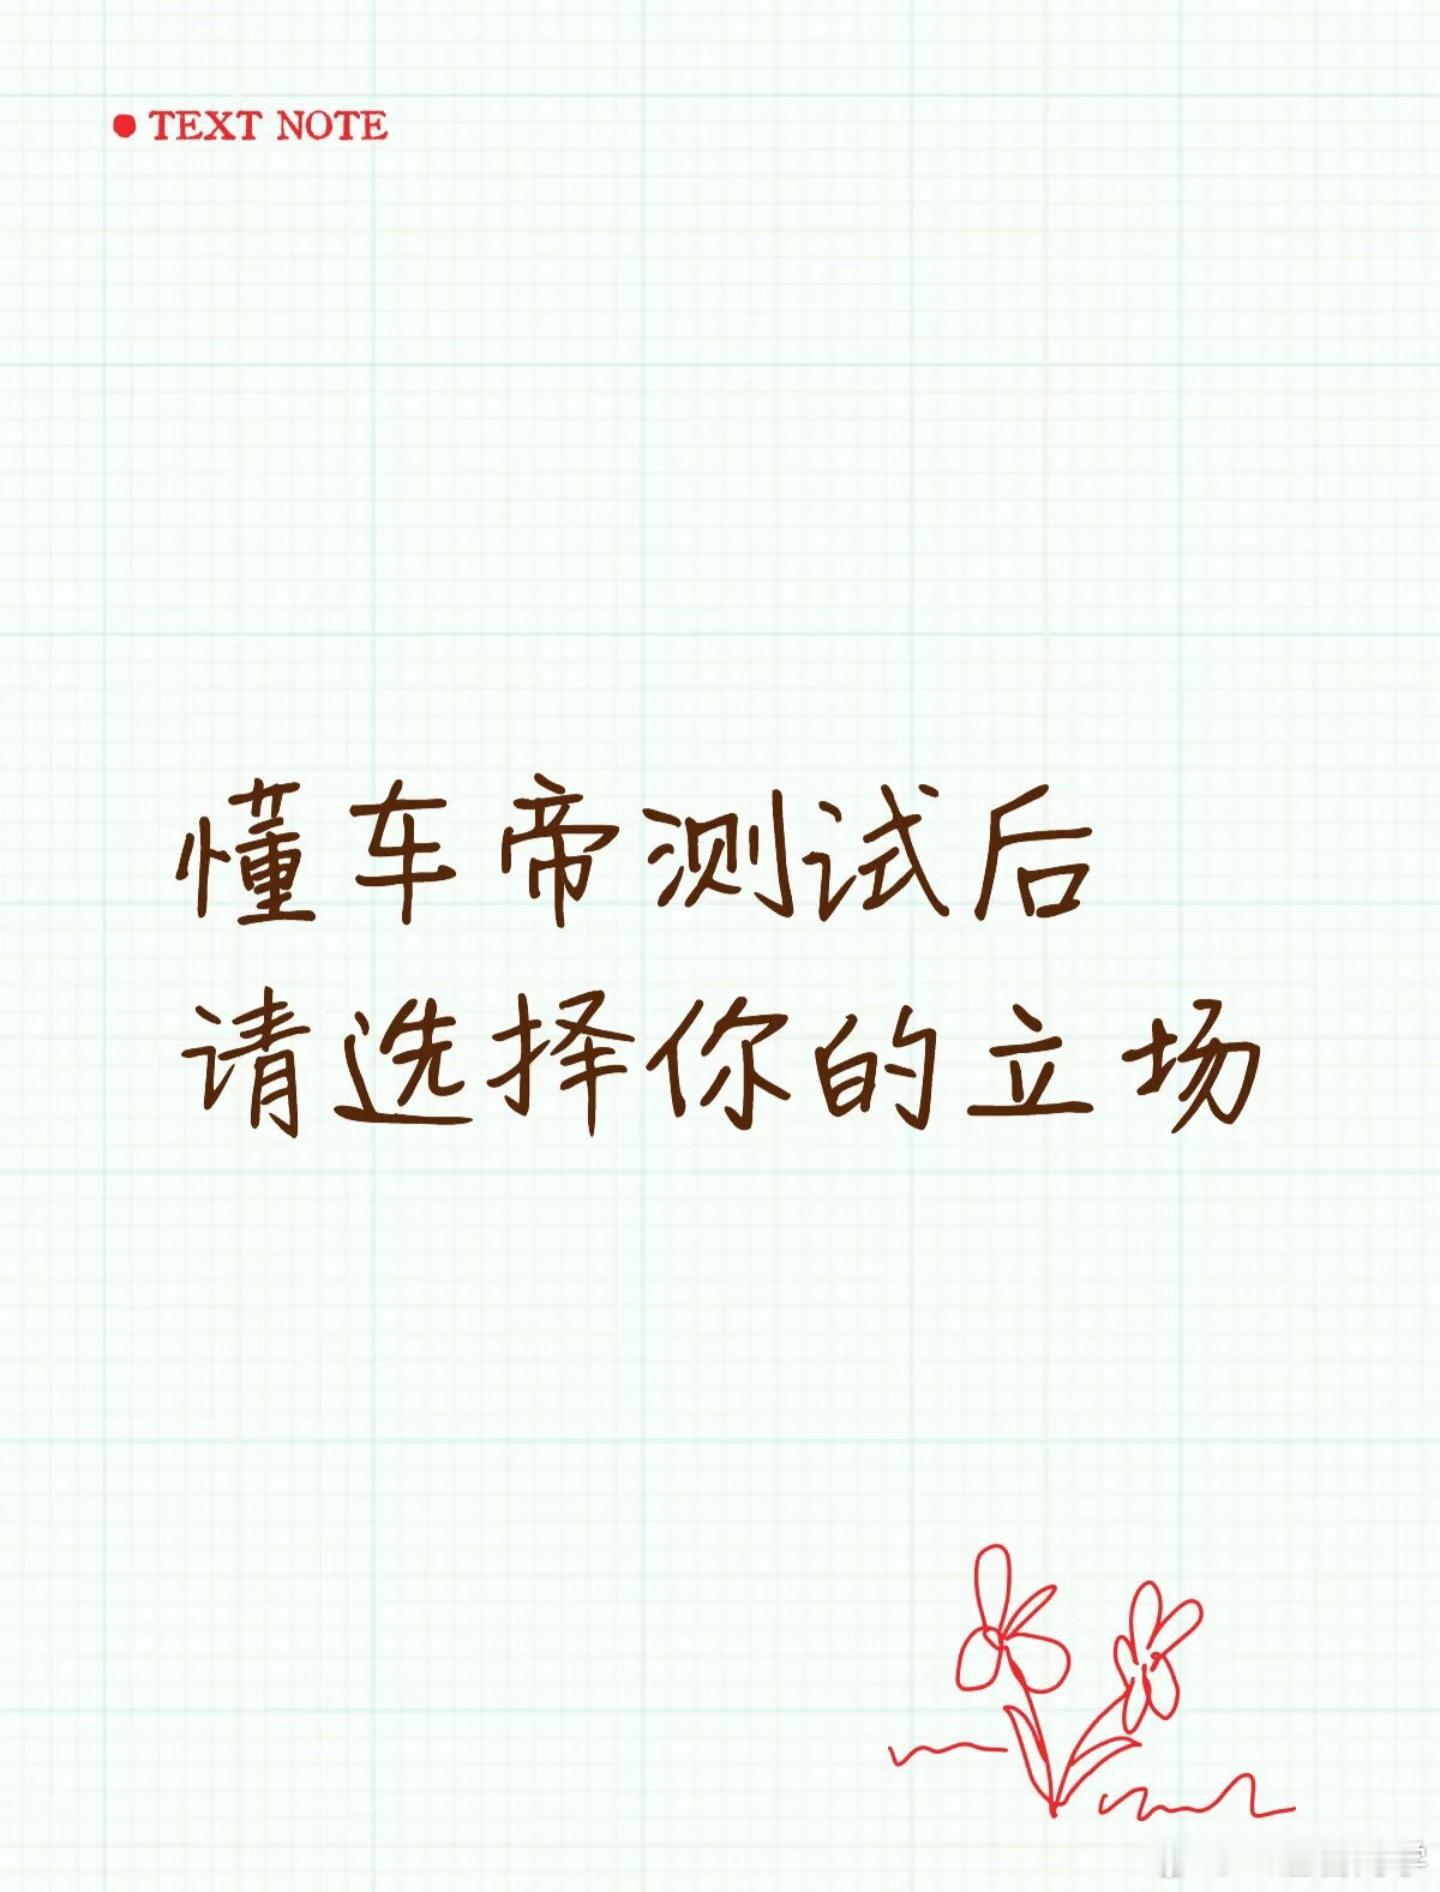 TEXT NOTE
懂车帝测试后
请选择你的立场